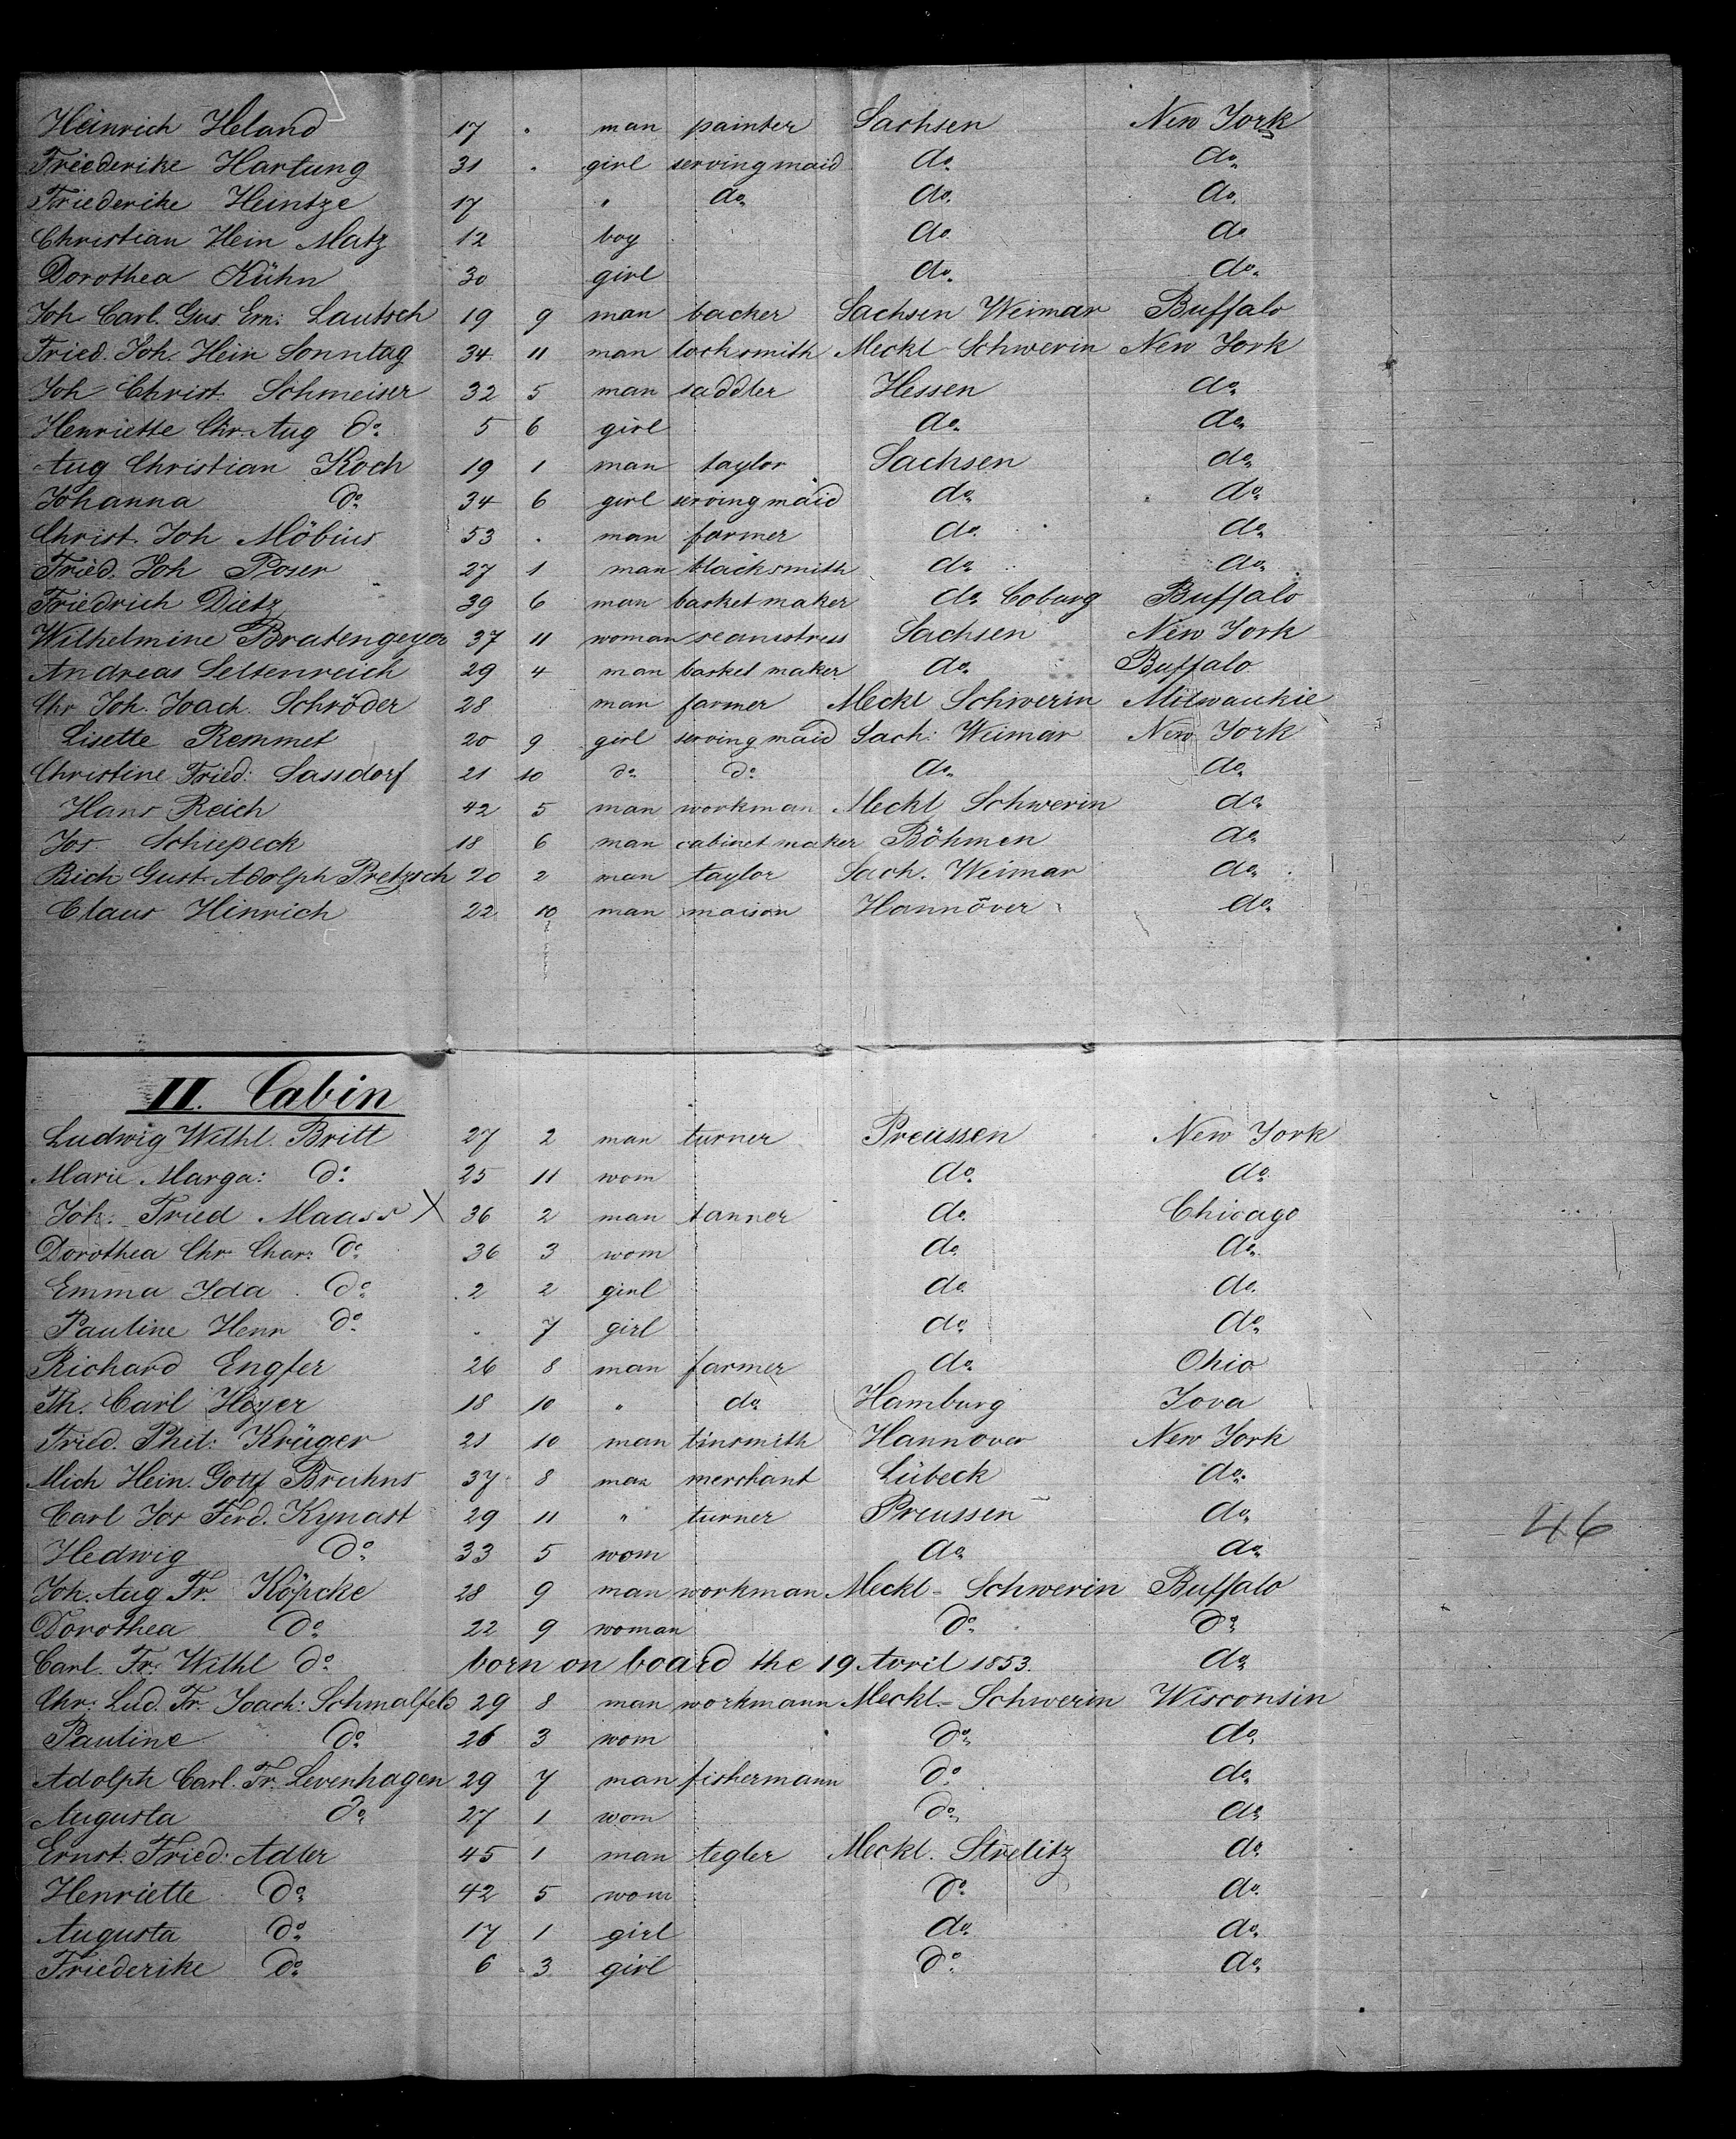 Heinrich Heland 17 " man painter Sachsen New York
Friederike Hartung 31 " girl serving maid do. do.
Friederike Heintze 17 " do. do. do.
Christian Hein Matz 12 boy do. do
Dorothea Kühn 30 girl do. do.
Joh. Carl. Gus. Ern: Lautsch 19 9 man backer Sachsen Weimar Buffalo
Fried. Joh. Hein Sonntag 34 11 man locksmith Meckl Schwerin New York
Joh Christ. Schmeiser 32 5 man saddler Hessen do.
Henriette Chr. Aug do. 5 6 girl do. do.
Aug Christian Koch 19 1 man taylor Sachsen do.
Johanna do. 34 6 girl serving maid do. do.
Christ. Joh Möbius 53 . man farmer do. do.
Fried. Joh Poser 27 1 man blacksmith do. do.
Friedrich Dietz 39 6 man basket maker do. Coburg Buffalo
Wilhelmine Bratengeyer 37 11 woman seamstress Sachsen New York
Andreas Seltenreich 29 4 man basket maker do. Buffalo
Chr Joh. Joach. Schröder 28 man farmer Meckl Schwerin Milwaukie
Lisette Remmet 20 9 girl serving maid Sach: Weimar New York
Christine Fried: Sassdorf 21 10 do. do. do. do.
Hans Reich 42 5 man workman Meckl Schwerin do.
Jos Schiepeck 18 6 man cabinet maker Böhmen do.
Rich Gust. Adolph Pretzsch 20 2 man taylor Sach. Weimar do.
Claus Hinrich 22 10 man maison Hannover do.
II. Cabin
Ludwig Wilhl. Britt 27 2 man turner Preussen New York
Marie Marga: do. 25 11 wom do. do.
Joh. Fried Maass X 36 2 man tanner do. Chicago
Dorothea Chr Char: do. 36 3 wom do. do.
Emma Ida do. 2 2 girl do. do.
Pauline Henr do. . 7 girl do. do.
Richard Engfer 26 8 man farmer do. Ohio
Th. Carl Hoyer 18 10 " do. Hamburg Iova
Fried. Phil: Krüger 21 10 man tinsmith Hannover New York
Mich Hein. Gottf Bruhns 37 8 man merchant Lübeck do.
Carl Jos Ferd. Kynast 29 11 " turner Preussen do.
46
Hedwig do. 33 5 wom do. do.
Joh. Aug Fr. Köpcke 28 9 man workman Meckl- Schwerin Buffalo
Dorothea do. 22 9 woman do. do.
Carl. Fr. Wilhl do. born on board the 19 Avril 1853. do.
Chr: Lud. Fr. Joach: Schmalfeld 29 8 man workmann Meckl- Schwerin Wisconsin
Pauline do. 26 3 wom do. do.
Adolph Carl. Fr. Levenhagen 29 7 man fishermann do. do.
Augusta do. 27 1 wom do. do.
Ernst. Fried: Adler 45 1 man tegler Meckl. Strelitz do.
Henriette do. 42 5 wom do. do.
Augusta do. 17 1 girl do. do.
Friederike do. 6 3 girl do. do.